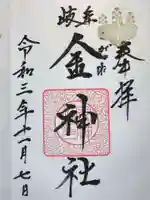 奉拝
岐阜
金神社
令和三年十一月七日